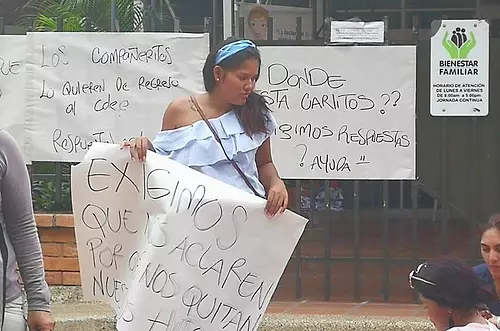 LOS COMPAÑERITOS
LO QUIEREN DE REGRESO
al Cole
RESPUESTA
DONDE
CARLITOS ??
RESPUESTAS
? AYUDA "
BIENESTAR
FAMILIAR
HORARIO DE ATENCION
DE LUNES A VIERNES
DE 8:00am a 5:00pm
JORNADA CONTINUA
EXIGIMOS
QUE NOS ACLAREN
POR NOS QUITAN